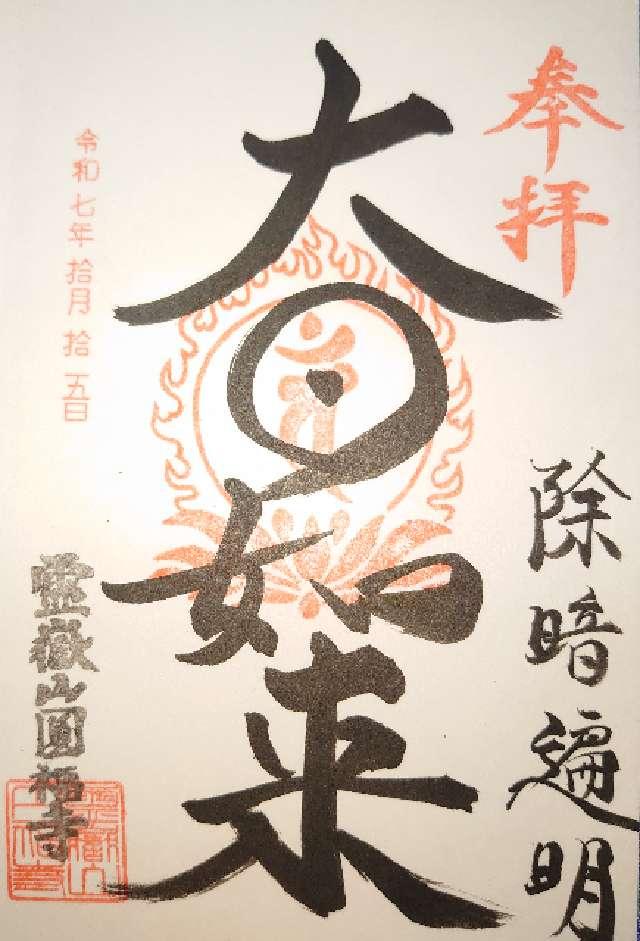 奉拝
除暗遍明
大日如来
令和七年 拾月 拾五日
靈嶽山圓福寺